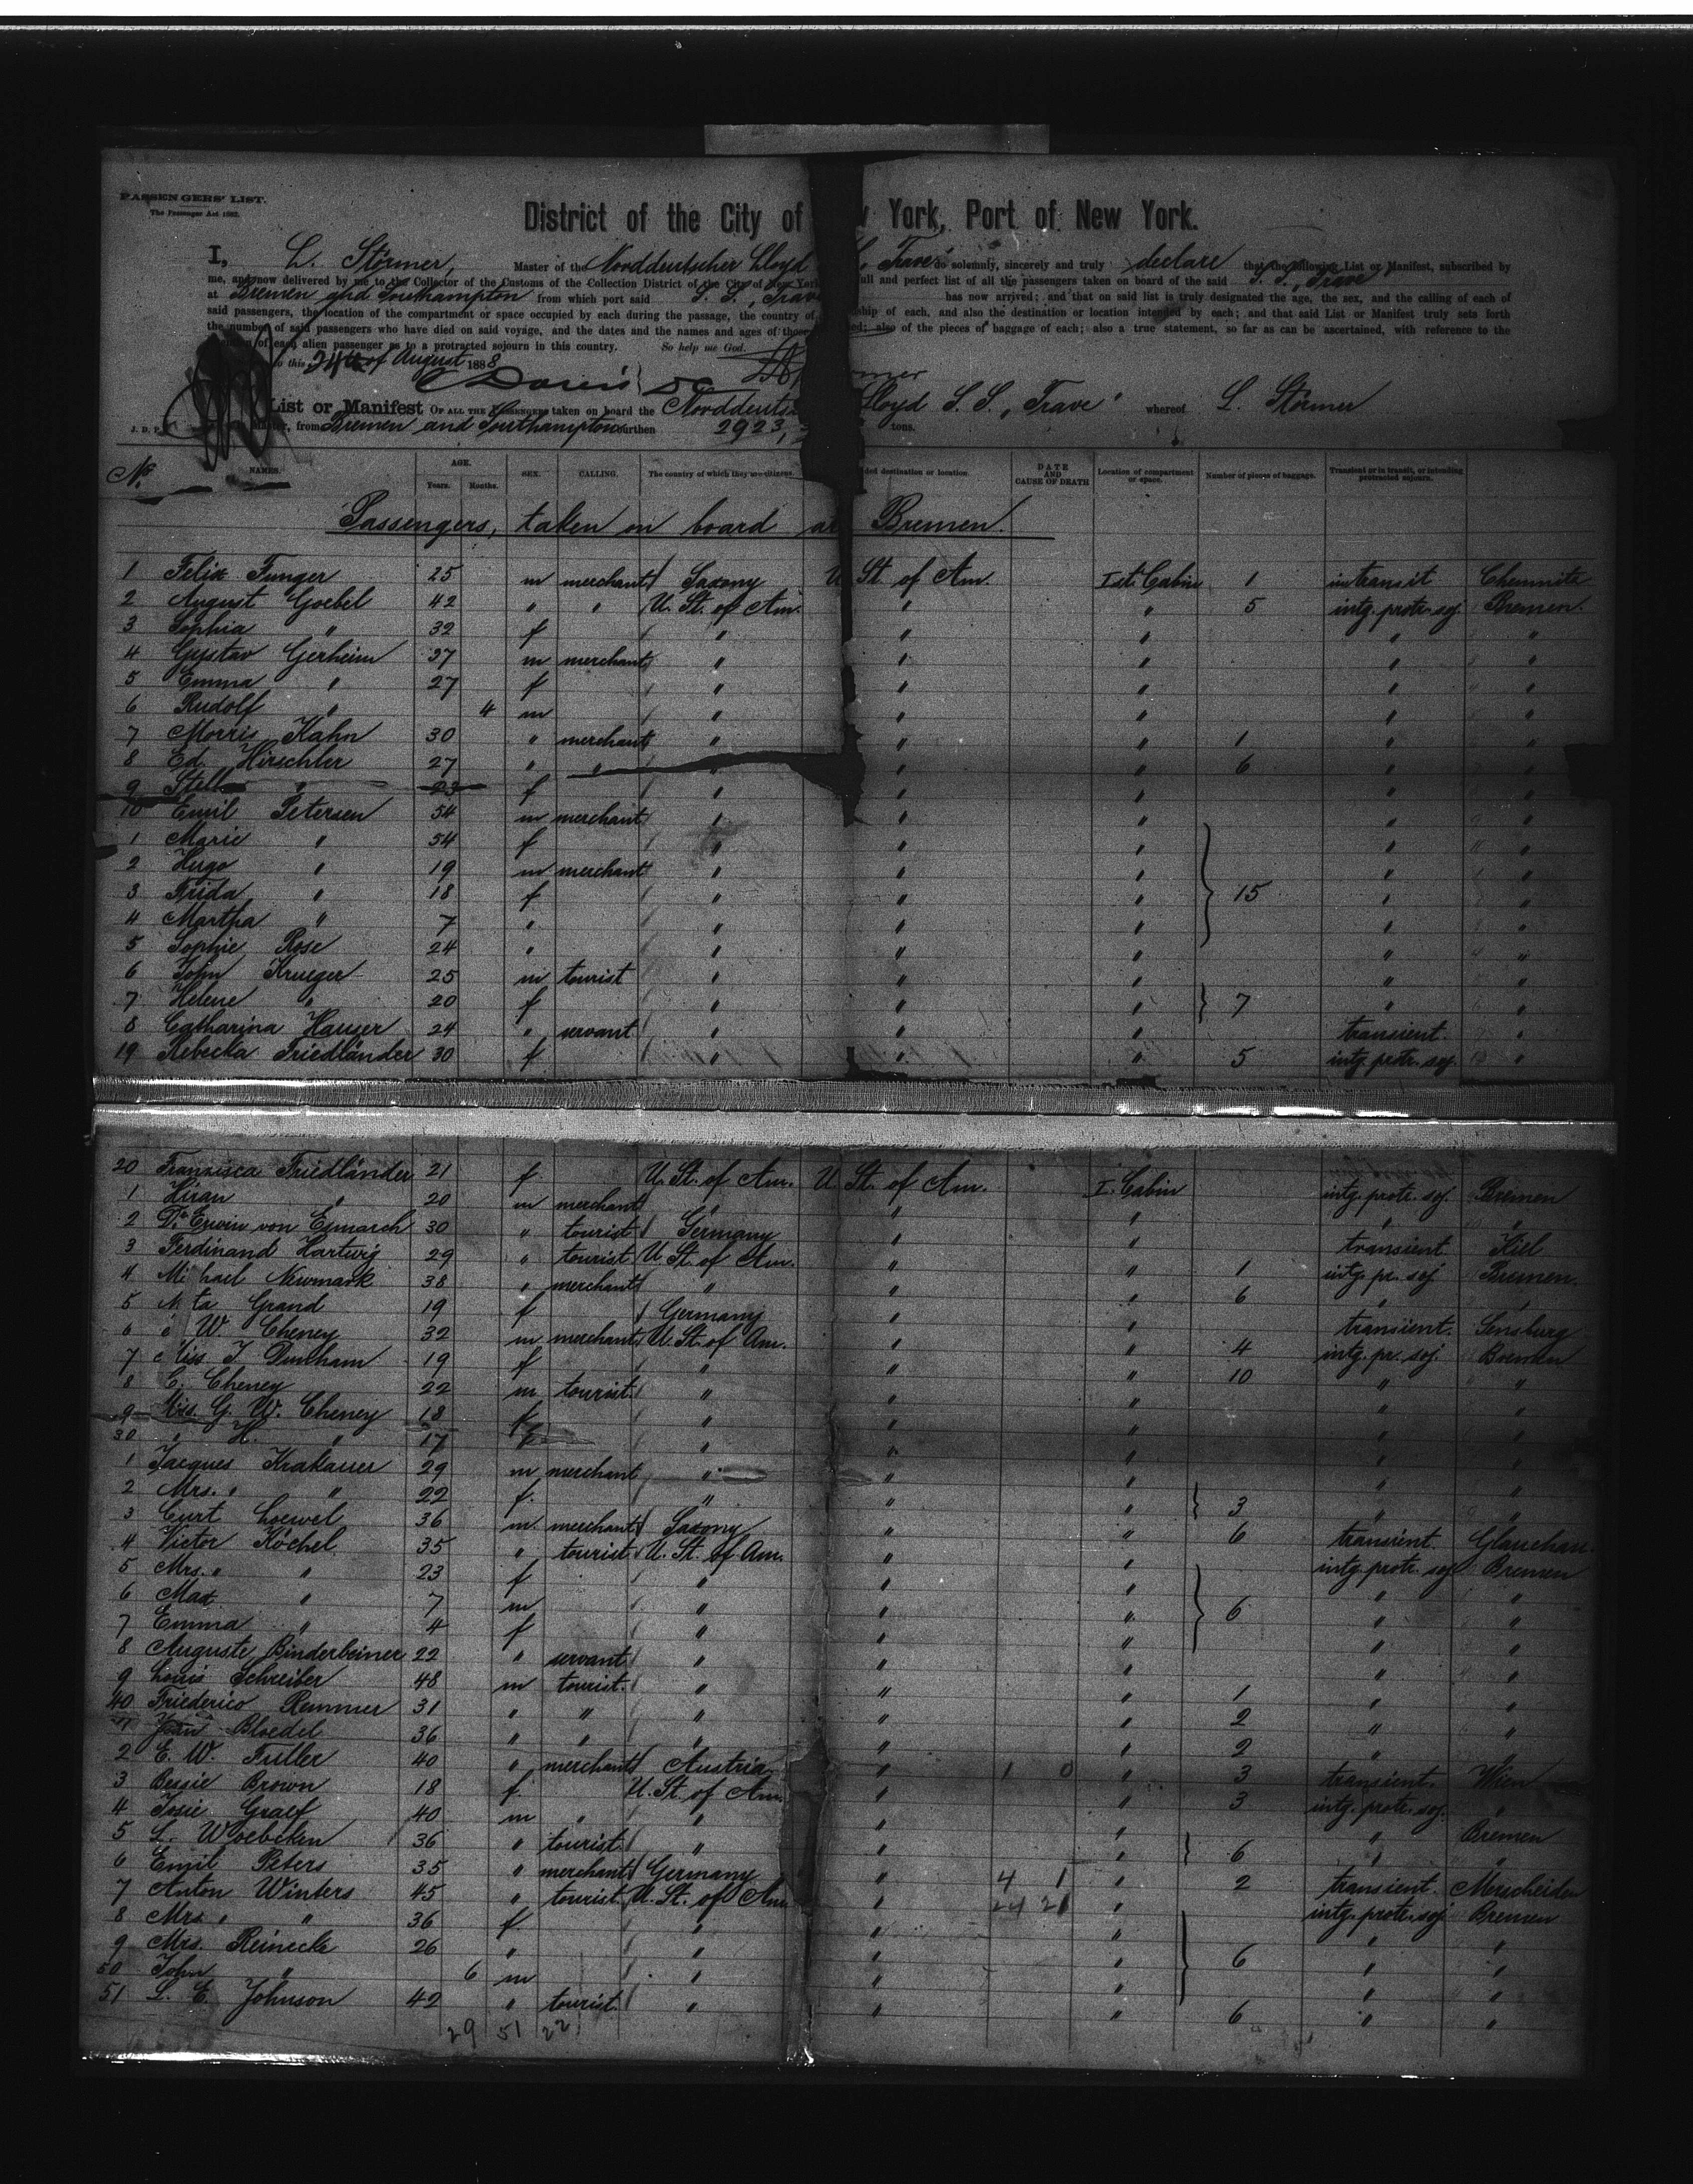 PASSENGERS' LIST.
The Passenger Act 1882.
District of the City of York, Port of New York.
I, L. Störmer, Master of the Norddeutscher Lloyd Trave do solemnly, sincerely and truly declare that the following List or Manifest, subscribed by
me, and now delivered by me to the Collector of the Customs of the Collection District of the City of New York full and perfect list of all the passengers taken on board of the said S. S. Trave
at Bremen and Southampton from which port said S. S. Trave has now arrived; and that on said list is truly designated the age, the sex, and the calling of each of
said passengers, the location of the compartment or space occupied by each during the passage, the country of ship of each, and also the destination or location intended by each; and that said List or Manifest truly sets forth
the number of said passengers who have died on said voyage, and the dates and the names and ages of those also of the pieces of baggage of each; also a true statement, so far as can be ascertained, with reference to the
of each alien passenger as to a protracted sojourn in this country. So help me God.
this 24th of August 1888
List or Manifest OF ALL THE PASSENGERS taken on board the Norddeuts Lloyd S. S. „Trave" whereof L. Störmer
from Bremen and Southampton burthen 2923, tons.
No. NAMES. AGE. Years. Months. SEX. CALLING. The country of which they are citizens. destination or location. DATE AND CAUSE OF DEATH Location of compartment or space. Number of pieces of baggage. Transient or in transit, or intending protracted sojourn.
Passengers, taken on board at Bremen.
1 Felix Funger 25 m merchant Saxony U. St. of Am. Ist. Cabin 1 in transit Chemnitz
2 August Goebel 42 " " U. St. of Am. " " 5 intg. protr. soj. Bremen.
3 Sophia " 32 f " " " " "
4 Gustav Gerheim 37 m merchant " " " " "
5 Emma " 27 f " " " " "
6 Rudolf " 4 m " " " " "
7 Morris Kahn 30 " merchant " " " 1 " "
8 Ed. Hirschler 27 " " " " " 6 " "
9 Stell " 23 f " " " " "
10 Emil Petersen 54 m merchant " " " " "
1 Marie " 54 f " " " " "
2 Hugo " 19 m merchant " " " " "
3 Frida " 18 f " " " 15 " "
4 Martha " 7 " " " " " "
5 Sophie Rose 24 " " " " " "
6 John Krueger 25 m tourist " " " " "
7 Helene " 20 f " " " 7 " "
8 Catharina Hauser 24 " servant " " " transient. "
19 Rebecka Friedländer 30 f " " " 5 intg. protr. soj. "
20 Franzisca Friedländer 21 f. U. St. of Am. U. St. of Am. I. Cabin intg. protr. soj. Bremen
1 Hiran " 20 m merchant " " " " "
2 Dr. Erwin von Esmarch 30 " tourist Germany " " transient. Kiel
3 Ferdinand Hartwig 29 " tourist U. St. of Am. " " 1 intg. pr. soj. Bremen.
4 Mi hael Newmark 38 " merchant " " " 6 " "
5 ta Grand 19 f Germany " " transient. Sensburg
6 W. Cheney 32 m merchant U. St. of Am. " " 4 intg. pr. soj. Bremen
7 iss J. Dunham 19 f " " " 10 " "
8 C. Cheney 22 m tourist. " " " " "
9 Miss G. W. Cheney 18 f " " " " "
30 " H. " 17 " " " " "
1 Jacques Krakauer 29 m merchant " " " " "
2 Mrs. " " 22 f. " " " 3 " "
3 Curt Loewel 36 m. merchant Saxony " " 6 transient. Glauchau.
4 Victor Köchel 35 " tourist. U. St. of Am. " " intg. protr. soj. Bremen
5 Mrs. " " 23 f " " " " "
6 Max " 7 m " " " 6 " "
7 Emma " 4 f " " " " "
8 Auguste Binderbeiner 22 " servant " " " " "
9 Louis Schreiber 48 m tourist. " " " 1 " "
40 Friederico Remmer 31 " " " " " 2 " "
Bloedel 36 " " " " " 2 " "
2 E. W. Fuller 40 " merchant Austria " 1 0 " 3 transient. Wien
3 Bessie Brown 18 f. U. St. of Am. " " 3 intg. protr. soj. "
4 Josie Graef 40 m " " " " " Bremen
5 L. Woebcken 36 " tourist. " " " 6 " "
6 Emil Peters 35 " merchant Germany " 4 1 " 2 transient. Merscheiden
7 Anton Winters 45 " tourist. U. St. of Am. " 24 21 " intg. protr. soj. Bremen
8 Mrs. " " 36 f. " " " " "
9 Mrs. Reinecke 26 " " " " 6 " "
50 John " 6 m " " " " "
51 L. E. Johnson 42 " tourist. " " " 6 " "
29 51 22